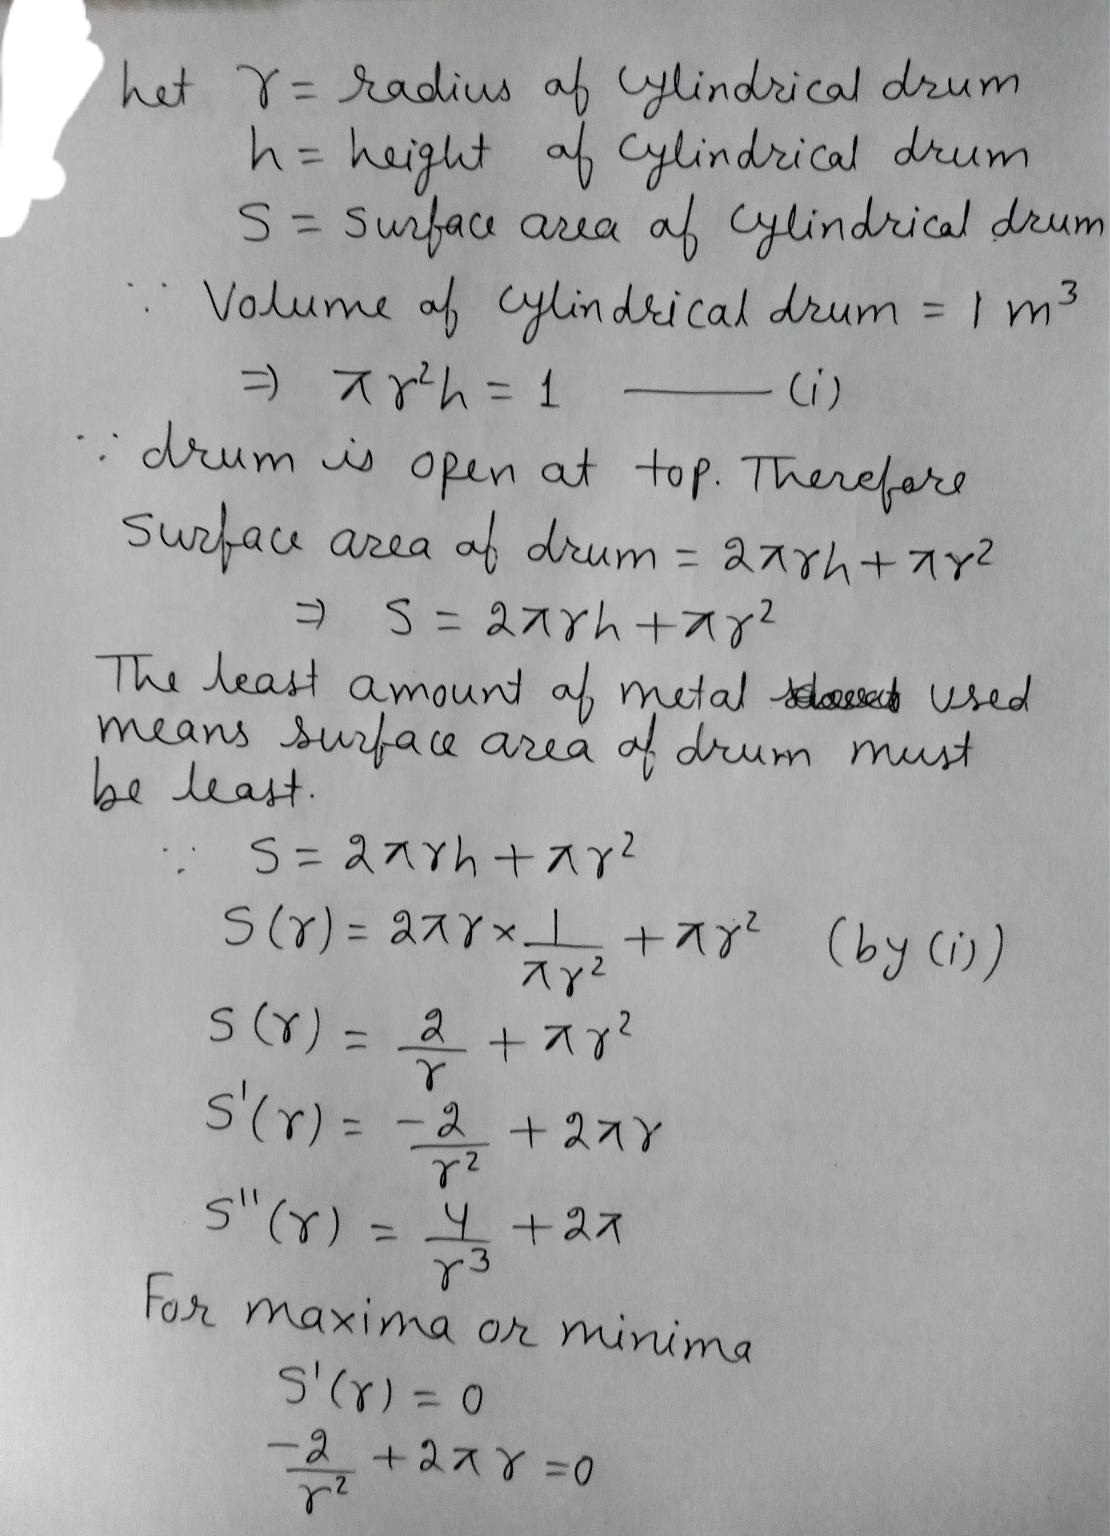 Let r = radius of cylindrical drum
h = height of cylindrical drum
S = Surface area of cylindrical drum
∵ Volume of cylindrical drum = 1 m³
⇒ πr²h = 1 —— (i)
∵ drum is open at top. Therefore
Surface area of drum = 2πrh + πr²
⇒ S = 2πrh + πr²
The least amount of metal used
means surface area of drum must
be least.
∵ S = 2πrh + πr²
S(r) = 2πr × 1/πr² + πr² (by (i))
S(r) = 2/r + πr²
S'(r) = -2/r² + 2πr
S''(r) = 4/r³ + 2π
For maxima or minima
S'(r) = 0
-2/r² + 2πr = 0